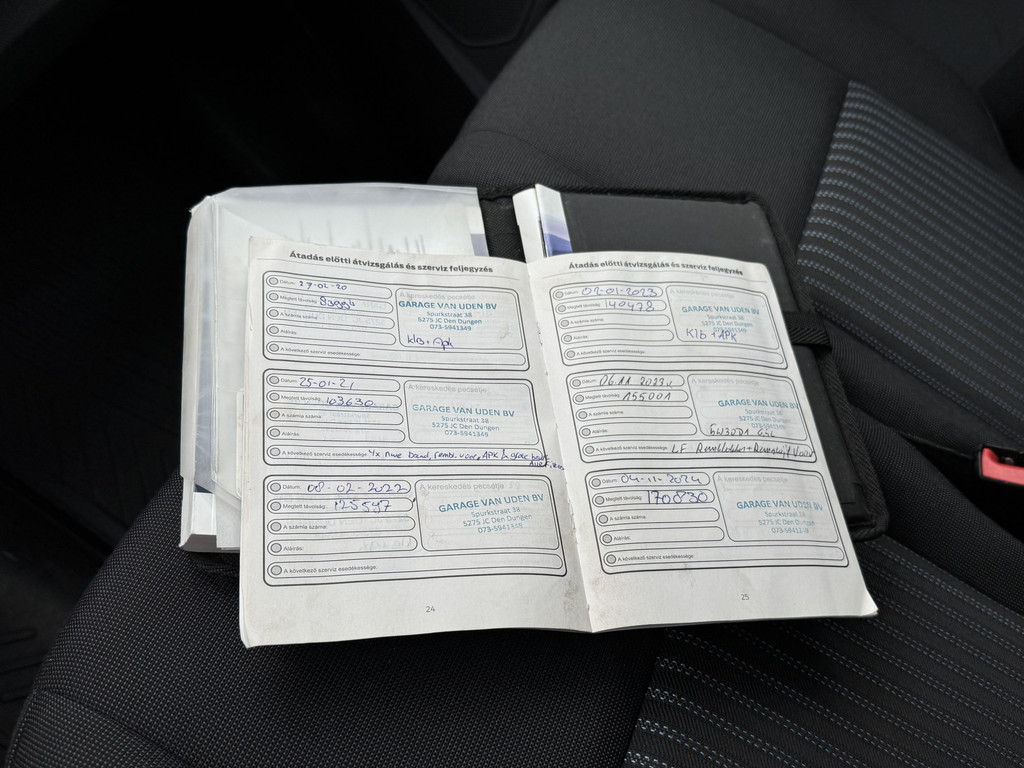 Átadás előtti átvizsgálás és szerviz feljegyzés
Dátum:
Megtett távolság:
A számla száma:
Aláírás:
A következő szerviz esedékessége:
A kereskedés pecsétje
GARAGE VAN UDEN BV
Spurkstraat 38
5275 JC Den Dungen
073-5941349
klb + Apk
Dátum: 25-01-21
Megtett távolság: 103630
A számla száma:
Aláírás:
A következő szerviz esedékessége: 4x nwe band, rembl. voor, APK
A kereskedés pecsétje
GARAGE VAN UDEN BV
Spurkstraat 38
5275 JC Den Dungen
073-5941349
Dátum: 08-02-2022
Megtett távolság: 125597
A számla száma:
Aláírás:
A következő szerviz esedékessége:
A kereskedés pecsétje
GARAGE VAN UDEN BV
Spurkstraat 38
5275 JC Den Dungen
073-5941349
24
Átadás előtti átvizsgálás és szerviz feljegyzés
Dátum: 02-01-2023
Megtett távolság: 140472
A számla száma:
Aláírás:
A következő szerviz esedékessége:
A kereskedés pecsétje
GARAGE VAN UDEN BV
Spurkstraat 38
5275 JC Den Dungen
073-5941349
Klb + APK
Dátum: 06.11.2023
Megtett távolság: 155001
A számla száma:
Aláírás:
A következő szerviz esedékessége: LF
A kereskedés pecsétje
GARAGE VAN UDEN BV
Spurkstraat 38
5275 JC Den Dungen
073-5941349
5W30
Dátum: 04-11-2024
Megtett távolság: 170830
A számla száma:
Aláírás:
A következő szerviz esedékessége:
A kereskedés pecsétje
GARAGE VAN UDEN BV
Spurkstraat 38
5275 JC Den Dungen
25